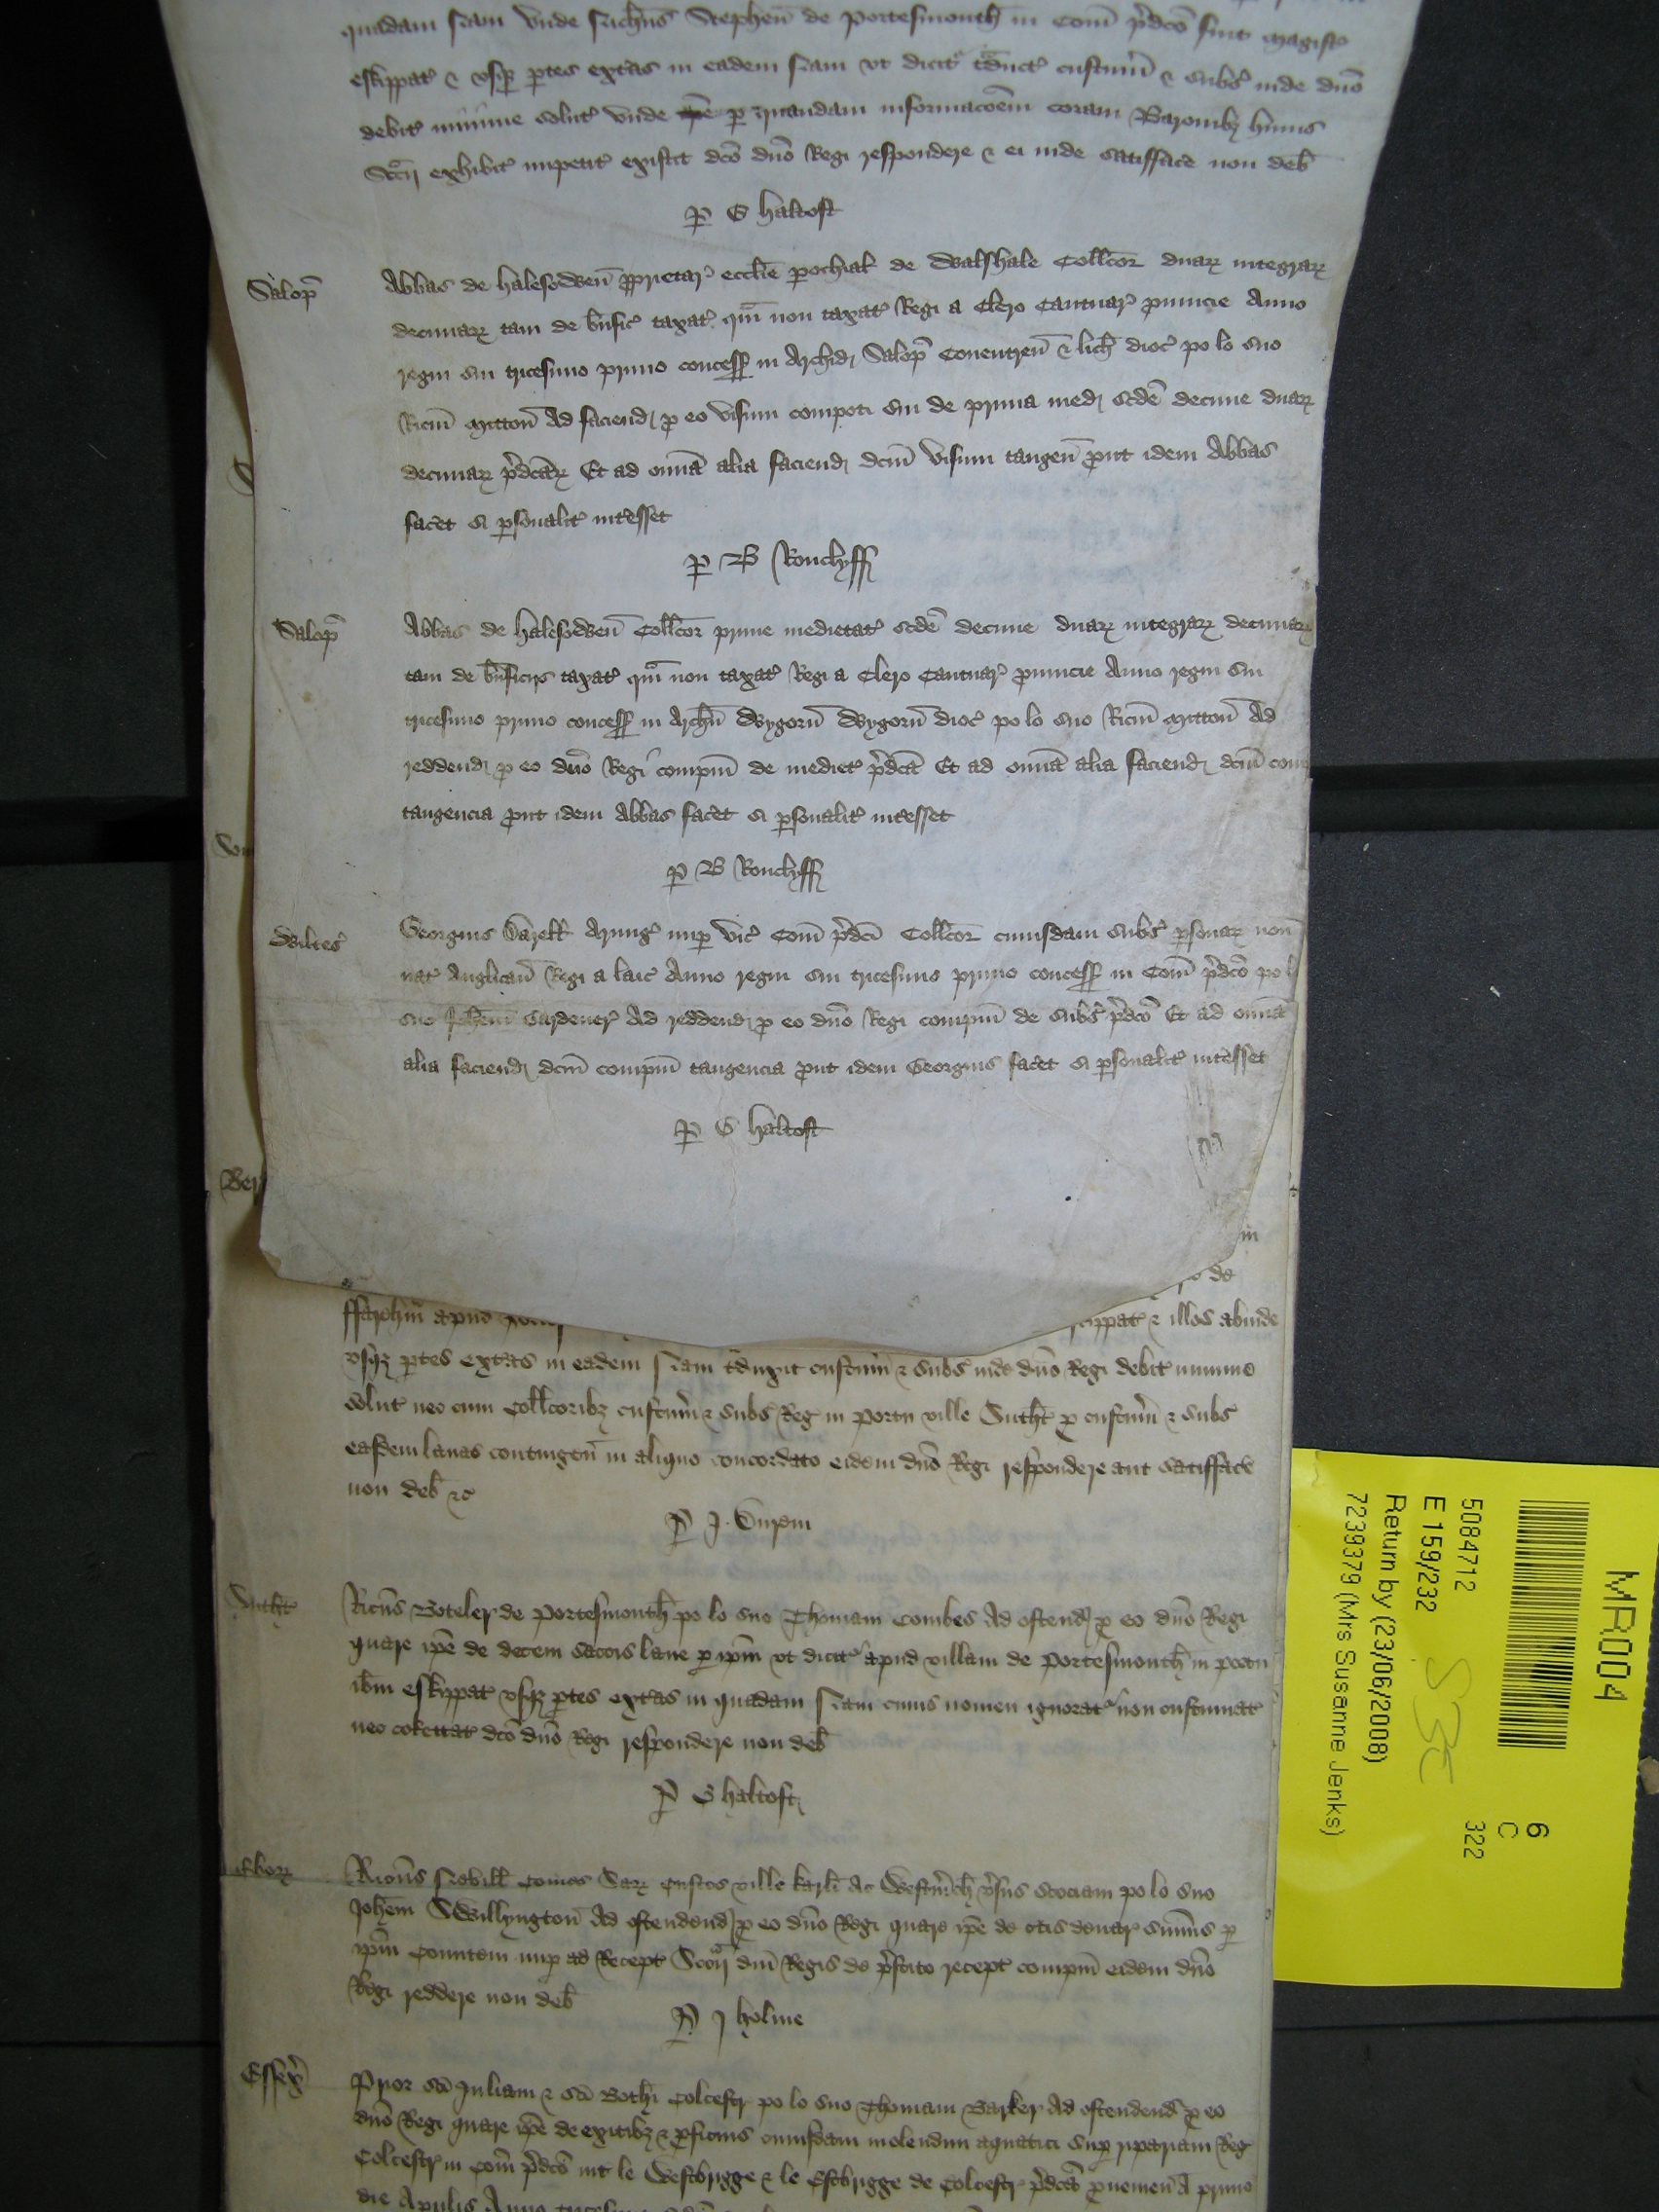 quadam Navi unde Stephen de Portesmouth in Com p̄dc̄o fuit magistr
eskippat & usq̨ ptes extas in eadem Navi ut dicit tduct custum & subs inde dn̄o
debit minime solut unde p quandam informacōem coram Baronibȝ huius
Scc̄ij exhibit impetit existit dc̄o dn̄o Regi respondere & ei inde satisface non deb̄
P G haltoft
Salop̄ Abbas de halesowen̄ ꝓprietar ecclie pochial de Walshale Coll̄cor duaꝝ integraꝝ
decimaꝝ tam de b̄nfic taxat qm̄ non taxat Regi a Clero Cantuar ꝓuincie Anno
regni sui tricesimo primo concess in Archid Salop̄ Couentren̄ & lich dioc̄ po lo suo
Ricm̄ Mitton̄ Ad faciend ꝓ eo visum compoti sui de prima med sc̄de decime duaꝝ
decimaꝝ p̄dc̄aꝝ Et ad om̄ia alia faciend dc̄m visum tangen̄ ꝓut idem Abbas
facet si psonalit int̄esset
P B Rouclyff
Salop̄ Abbas de halesowen̄ Coll̄cor prime medietat sc̄de decime duaꝝ integraꝝ decimaꝝ
tam de b̄nficijs taxat qm̄ non taxat Regi a Clero Cantuar ꝓuincie Anno regni sui
tricesimo primo concess in Archn̄ Wygorn̄ Wygorn̄ dioc̄ po lo suo Ricm̄ Mitton̄ Ad
reddend ꝓ eo dn̄o Regi compm̄ de mediet p̄dc̄a Et ad om̄ia alia faciend dc̄m com
tangencia ꝓut idem Abbas facet si psonalit int̄esset
P B Rouclyff
Wiltes Georgius Darell Armig nup vic̄ Com̄ p̄dc̄i Coll̄cor cuiusdam subs psonaꝝ non
nat Anglican̄ Regi a laic Anno regni sui tricesimo primo concess in Com̄ p̄dc̄o po l
suo Joh̄em Gardener Ad reddend ꝓ eo dn̄o Regi compm̄ de subs p̄dc̄o Et ad om̄ia
alia faciend dc̄m compm̄ tangencia ꝓut idem Georgius facet si psonalit int̄esset
P G haltoft
Ber
in
de
ffarehm̄ apud eskippat & illos abinde
usq̨ ptes extas in eadem Navi t̄duxit custum̄ & subs inde dn̄o Regi debit minime
solut nec cum Coll̄coribȝ custum̄ & subs Reg in portu ville Sutht ꝓ custum̄ & subs
easdem lanas contingen̄ in aliquo concordato eidem dn̄o Regi respondere aut satisface
non deb̄ &c
P J. Durem
Sutht Ricūs Boteler de Portesmouth po lo suo Thomam Combes Ad ostend ꝓ eo dn̄o Regi
quare ip̄e de decem saccis lane p ip̄m ut dicit apud villam de Portesmouth in portu
ib̄m eskippat usq̨ ptes extas in quadam Navi cuius nomen ignorat non custumat
nec cokettat dc̄o dn̄o Regi respondere non deb̄
P G haltoft
Ricūs Nevill Comes Saꝝ Custos ville Karli Ac Westm̄ch v̄sus Scociam po lo suo
Joh̄em Swillyngton̄ Ad ostendend ꝓ eo dn̄o Regi quare ip̄e de c̄tis denar summis p
ip̄m Comitem nup ad Recept Scc̄ij dn̄i Regis de p̄stito recept compm̄ eidem dn̄o
Regi reddere non deb̄
P J holme
Essex Prior sc̄i Juliani & sc̄i Both̄i Colcestr po lo suo Thomam Barker Ad ostendend ꝓ eo
dn̄o Regi quare ip̄e de exitibȝ & ꝓficuis cuiusdam molendini aquatici sup ripariam Reg
Colcestr in Com̄ p̄dc̄o int le Westbrigge & le Estbrigge de Colcestr p̄dc̄a ꝓuenien̄ A primo
die Aprilis Anno
MR004
5084712
E 159/232
Return by (23/06/2008)
7239379 (Mrs Susanne Jenks)
6
C
322